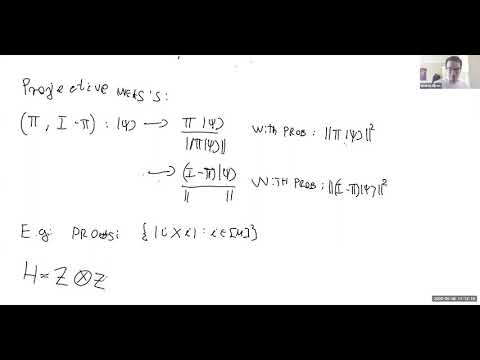 Projective meas's:
(Π, I-Π) : |ψ⟩ → Π|ψ⟩ / ||Π|ψ⟩|| with prob: ||Π|ψ⟩||²
→ (I-Π)|ψ⟩ / || || with prob: ||(I-Π)|ψ⟩||²
E.g. {|i⟩⟨i| : i∈[N]}
H = Z ⊗ Z